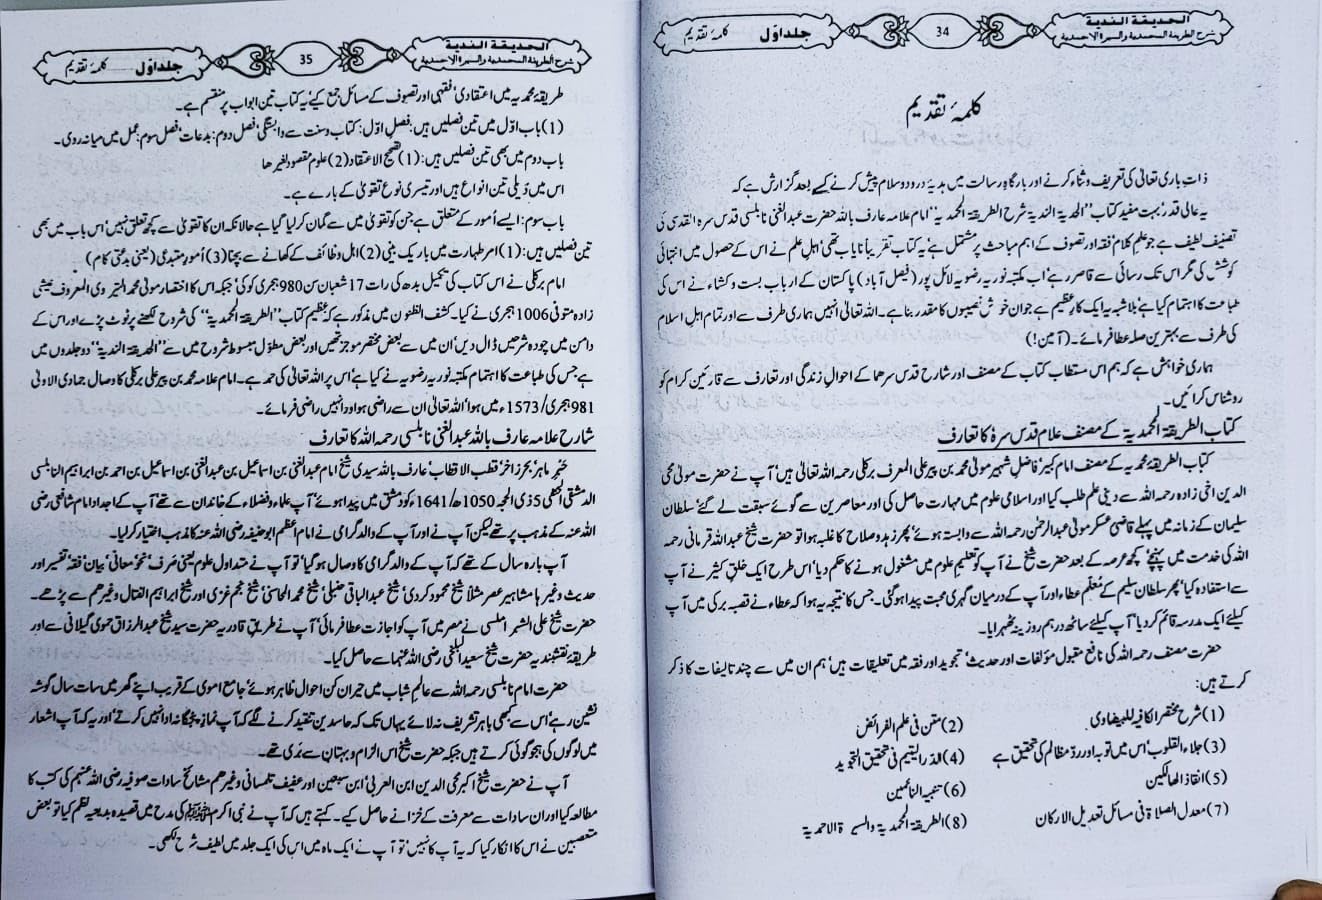 الحديقة الندية
شرح الطريقة المحمدية والسيرة الاحمدية
34
جلد اوّل
کلمۂ تقدیم
کلمۂ تقدیم
ذات باری تعالیٰ کی تعریف و ثناء کرنے اور بارگاہِ رسالت میں ہدیۂ درود و سلام پیش کرنے کے بعد گزارش ہے کہ
یہ عالی قدر بہت مفید کتاب ''الحدیقۃ الندیۃ شرح الطریقۃ المحمدیۃ'' امام علامہ عارف باللہ حضرت عبدالغنی نابلسی قدس سرہ القدسی کی
تصنیف لطیف ہے جو علم کلام' فقہ اور تصوف کے اہم مباحث پر مشتمل ہے' یہ کتاب تقریباً نایاب تھی' اہلِ علم نے اس کے حصول میں انتہائی
کوشش کی مگر اس تک رسائی سے قاصر رہے' اب مکتبہ نوریہ رضویہ لائل پور (فیصل آباد) پاکستان کے اربابِ بست و کشاء نے اس کی
طباعت کا اہتمام کیا ہے' بلاشبہ یہ ایک کارِ عظیم ہے جو ان خوش نصیبوں کا مقدر بنا ہے۔ اللہ تعالیٰ انہیں ہماری طرف سے اور تمام اہلِ اسلام
کی طرف سے بہترین صلہ عطا فرمائے۔ (آمین!)
ہماری خواہش ہے کہ ہم اس مستطاب کتاب کے مصنف اور شارح قدس سرھما کے احوالِ زندگی اور تعارف سے قارئینِ کرام کو
روشناس کرائیں۔
کتاب الطریقۃ المحمدیۃ کے مصنف علام قدس سرہٗ کا تعارف
کتاب الطریقۃ محمدیہ کے مصنف امام کبیر' فاضلِ شہیر مولیٰ محمد بن پیر علی المعرف برکلی رحمہ اللہ تعالیٰ ہیں' آپ نے حضرت مولیٰ محی
الدین اخی زادہ رحمہ اللہ سے دینی علم طلب کیا اور اسلامی علوم میں مہارت حاصل کی اور معاصرین سے گوئے سبقت لے گئے' سلطان
سلیمان کے زمانہ میں پہلے قاضی عسکر مولیٰ عبدالرحمٰن رحمہ اللہ سے وابستہ ہوئے' پھر زہد و صلاح کا غلبہ ہوا تو حضرت شیخ عبداللہ قرمانی رحمہ
اللہ کی خدمت میں پہنچے' کچھ عرصہ کے بعد حضرت شیخ نے آپ کو تعلیمِ علوم میں مشغول ہونے کا حکم دیا' اس طرح ایک خلقِ کثیر نے آپ
سے استفادہ کیا' پھر سلطان سلیم کے مُعلّم عطاء اور آپ کے درمیان گہری محبت پیدا ہو گئی۔ جس کا نتیجہ یہ ہوا کہ عطاء نے قصبہ برکی میں آپ
کیلئے ایک مدرسہ قائم کر دیا' آپ کیلئے ساٹھ درہم روزینہ ٹھہرایا۔
حضرت مصنف رحمہ اللہ کی نافع مقبول مؤلفات اور حدیث' تجوید اور فقہ میں تعلیقات ہیں' ہم ان میں سے چند تالیفات کا ذکر
کرتے ہیں:
(1) شرح مختصر الکافیہ للبیضاوی (2) متن فی علم الفرائض
(3) جلاء القلوب' اس میں توبہ اور ردِّ مظالم کی تحقیق ہے (4) الدر الیتیم فی تحقیق التجوید
(5) انقاذ الھالکین (6) تنبیہ النائمین
(7) معدل الصلاۃ فی مسائل تعدیل الارکان (8) الطریقۃ المحمدیۃ والسیرۃ الاحمدیۃ
الحديقة الندية
شرح الطريقة المحمدية والسيرة الاحمدية
35
جلد اوّل
کلمۂ تقدیم
طریقۂ محمدیہ میں اعتقادی' فقہی اور تصوف کے مسائل جمع کیے' یہ کتاب تین ابواب پر منقسم ہے۔
(1) باب اوّل میں تین فصلیں ہیں: فصلِ اوّل: کتاب و سنت سے وابستگی' فصل دوم: بدعات' فصل سوم: عمل میں میانہ روی۔
باب دوم میں بھی تین فصلیں ہیں: (1) تصحیح الاعتقاد (2) علوم مقصود لغیرھا
اس میں ذیلی تین انواع ہیں اور تیسری نوع تقویٰ کے بارے ہے۔
باب سوم: ایسے اُمور کے متعلق ہے جن کو تقویٰ میں سے گمان کر لیا گیا ہے حالانکہ ان کا تقویٰ سے کچھ تعلق نہیں' اس باب میں بھی
تین فصلیں ہیں: (1) امر طہارت میں باریک بینی (2) اہل وظائف کے کھانے سے بچنا (3) اُمورِ مبتدی (یعنی بدعتی کام)
امام برکلی نے اس کتاب کی تکمیل بدھ کی رات 17 شعبان سن 980 ہجری کو کی' جبکہ اس کا اختصار مولیٰ محمد المعروف عیشی
زادہ متوفی 1006 ہجری نے کیا۔ کشف الظنون میں مذکور ہے کہ عظیم کتاب ''الطریقۃ المحمدیۃ'' کی شروح لکھنے پر ٹوٹ پڑے اور اس کے
دامن میں چودہ شرحیں ڈال دیں' ان میں سے بعض مختصر موجز تھیں اور بعض مطوّل مبسوط شروح میں سے ''الحدیقۃ الندیۃ'' دو جلدوں میں
ہے جس کی طباعت کا اہتمام مکتبہ نوریہ رضویہ نے کیا ہے' اس پر اللہ تعالیٰ کی حمد ہے۔ امام علامہ محمد بن پیر علی برکلی کا وصال جمادی الاولیٰ
981 ہجری/1573ء میں ہوا' اللہ تعالیٰ ان سے راضی ہو اور انہیں راضی فرمائے۔
شارح علامہ عارف باللہ عبدالغنی نابلسی رحمہ اللہ کا تعارف
حبرِ ماہر' بحرِ زاخر' قطب الاقطاب' عارف باللہ سیدی شیخ امام عبدالغنی بن اسماعیل بن عبدالغنی بن اسماعیل بن احمد بن ابراہیم النابلسی
الدمشقی الحنفی 5 ذی الحجہ 1050ھ/1641ء کو دمشق میں پیدا ہوئے' آپ علماء و فضلاء کے خاندان سے تھے' آپ کے اجداد امام شافعی رضی
اللہ عنہ کے مذہب پر تھے لیکن آپ نے اور آپ کے والد گرامی نے امام اعظم ابوحنیفہ رضی اللہ عنہ کا مذہب اختیار کر لیا۔
آپ بارہ سال کے تھے کہ آپ کے والد گرامی کا وصال ہو گیا' تو آپ نے متداول علوم یعنی صرف' نحو' معانی' بیان' فقہ' تفسیر اور
حدیث وغیرہا مشاہیر عصر مثلاً شیخ محمود کردی' شیخ عبدالباقی حنبلی' شیخ محمد المحاسنی' شیخ نجم غزی اور شیخ ابراہیم القتال وغیرھم سے پڑھے۔
حضرت شیخ علی الشبر املسی نے مصر میں آپ کو اجازت عطا فرمائی' آپ نے طریق قادریہ حضرت سید شیخ عبدالرزاق حموی گیلانی سے اور
طریقۂ نقشبندیہ حضرت شیخ سعید البلخی رضی اللہ عنہما سے حاصل کیا۔
حضرت امام نابلسی رحمہ اللہ سے عالمِ شباب میں حیران کن احوال ظاہر ہوئے' جامع اموی کے قریب اپنے گھر میں سات سال گوشہ
نشین رہے' اس سے کبھی باہر تشریف نہ لائے یہاں تک کہ حاسدین تنقید کرنے لگے کہ آپ نماز پنجگانہ ادا نہیں کرتے' اور یہ کہ آپ اشعار
میں لوگوں کی ہجو گوئی کرتے ہیں جبکہ حضرت شیخ اس الزام و بہتان سے بری تھے۔
آپ نے حضرت شیخ اکبر محی الدین ابن العربی' ابن سبعین اور عفیف تلمسانی وغیرھم مشائخ سادات صوفیہ رضی اللہ عنہم کی کتب کا
مطالعہ کیا اور ان سادات سے معرفت کے خزانے حاصل کیے۔ کہتے ہیں کہ آپ نے نبی اکرم ﷺ کی مدح میں قصیدہ بدیعیہ نظم کیا تو بعض
متعصبین نے اس کا انکار کیا کہ یہ آپ کا نہیں' تو آپ نے ایک ماہ میں اس کی ایک جلد میں لطیف شرح لکھی۔